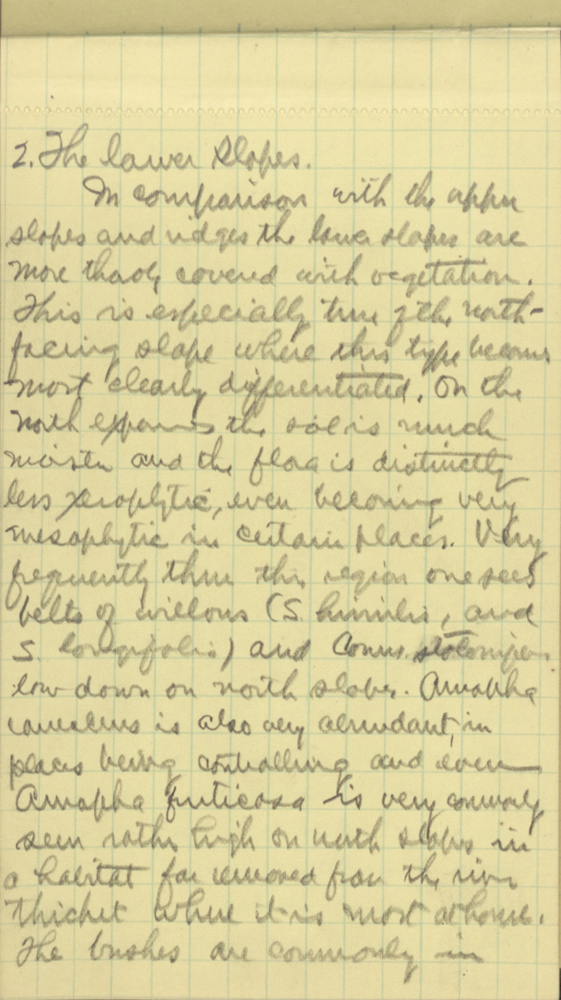 2. The lower slopes.
In comparison with the upper
slopes and ridges the lower slopes are
more thickly covered with vegetation.
This is especially true of the north-
facing slope where this type becomes
most clearly differentiated. On the
north exposures the soil is much
moister and the flora is distinctly
less xerophytic, even becoming very
mesophytic in certain places. Very
frequently thru this region one sees
belts of willows (S. humilis, and
S. longifolia) and Cornus stolonifera
low down on north slopes. Amorpha
canescens is also very abundant, in
places being controlling and even
Amorpha fruticosa is very commonly
seen rather high on north slopes in
a habitat far removed from the river
thicket where it is most at home.
The bushes are commonly in